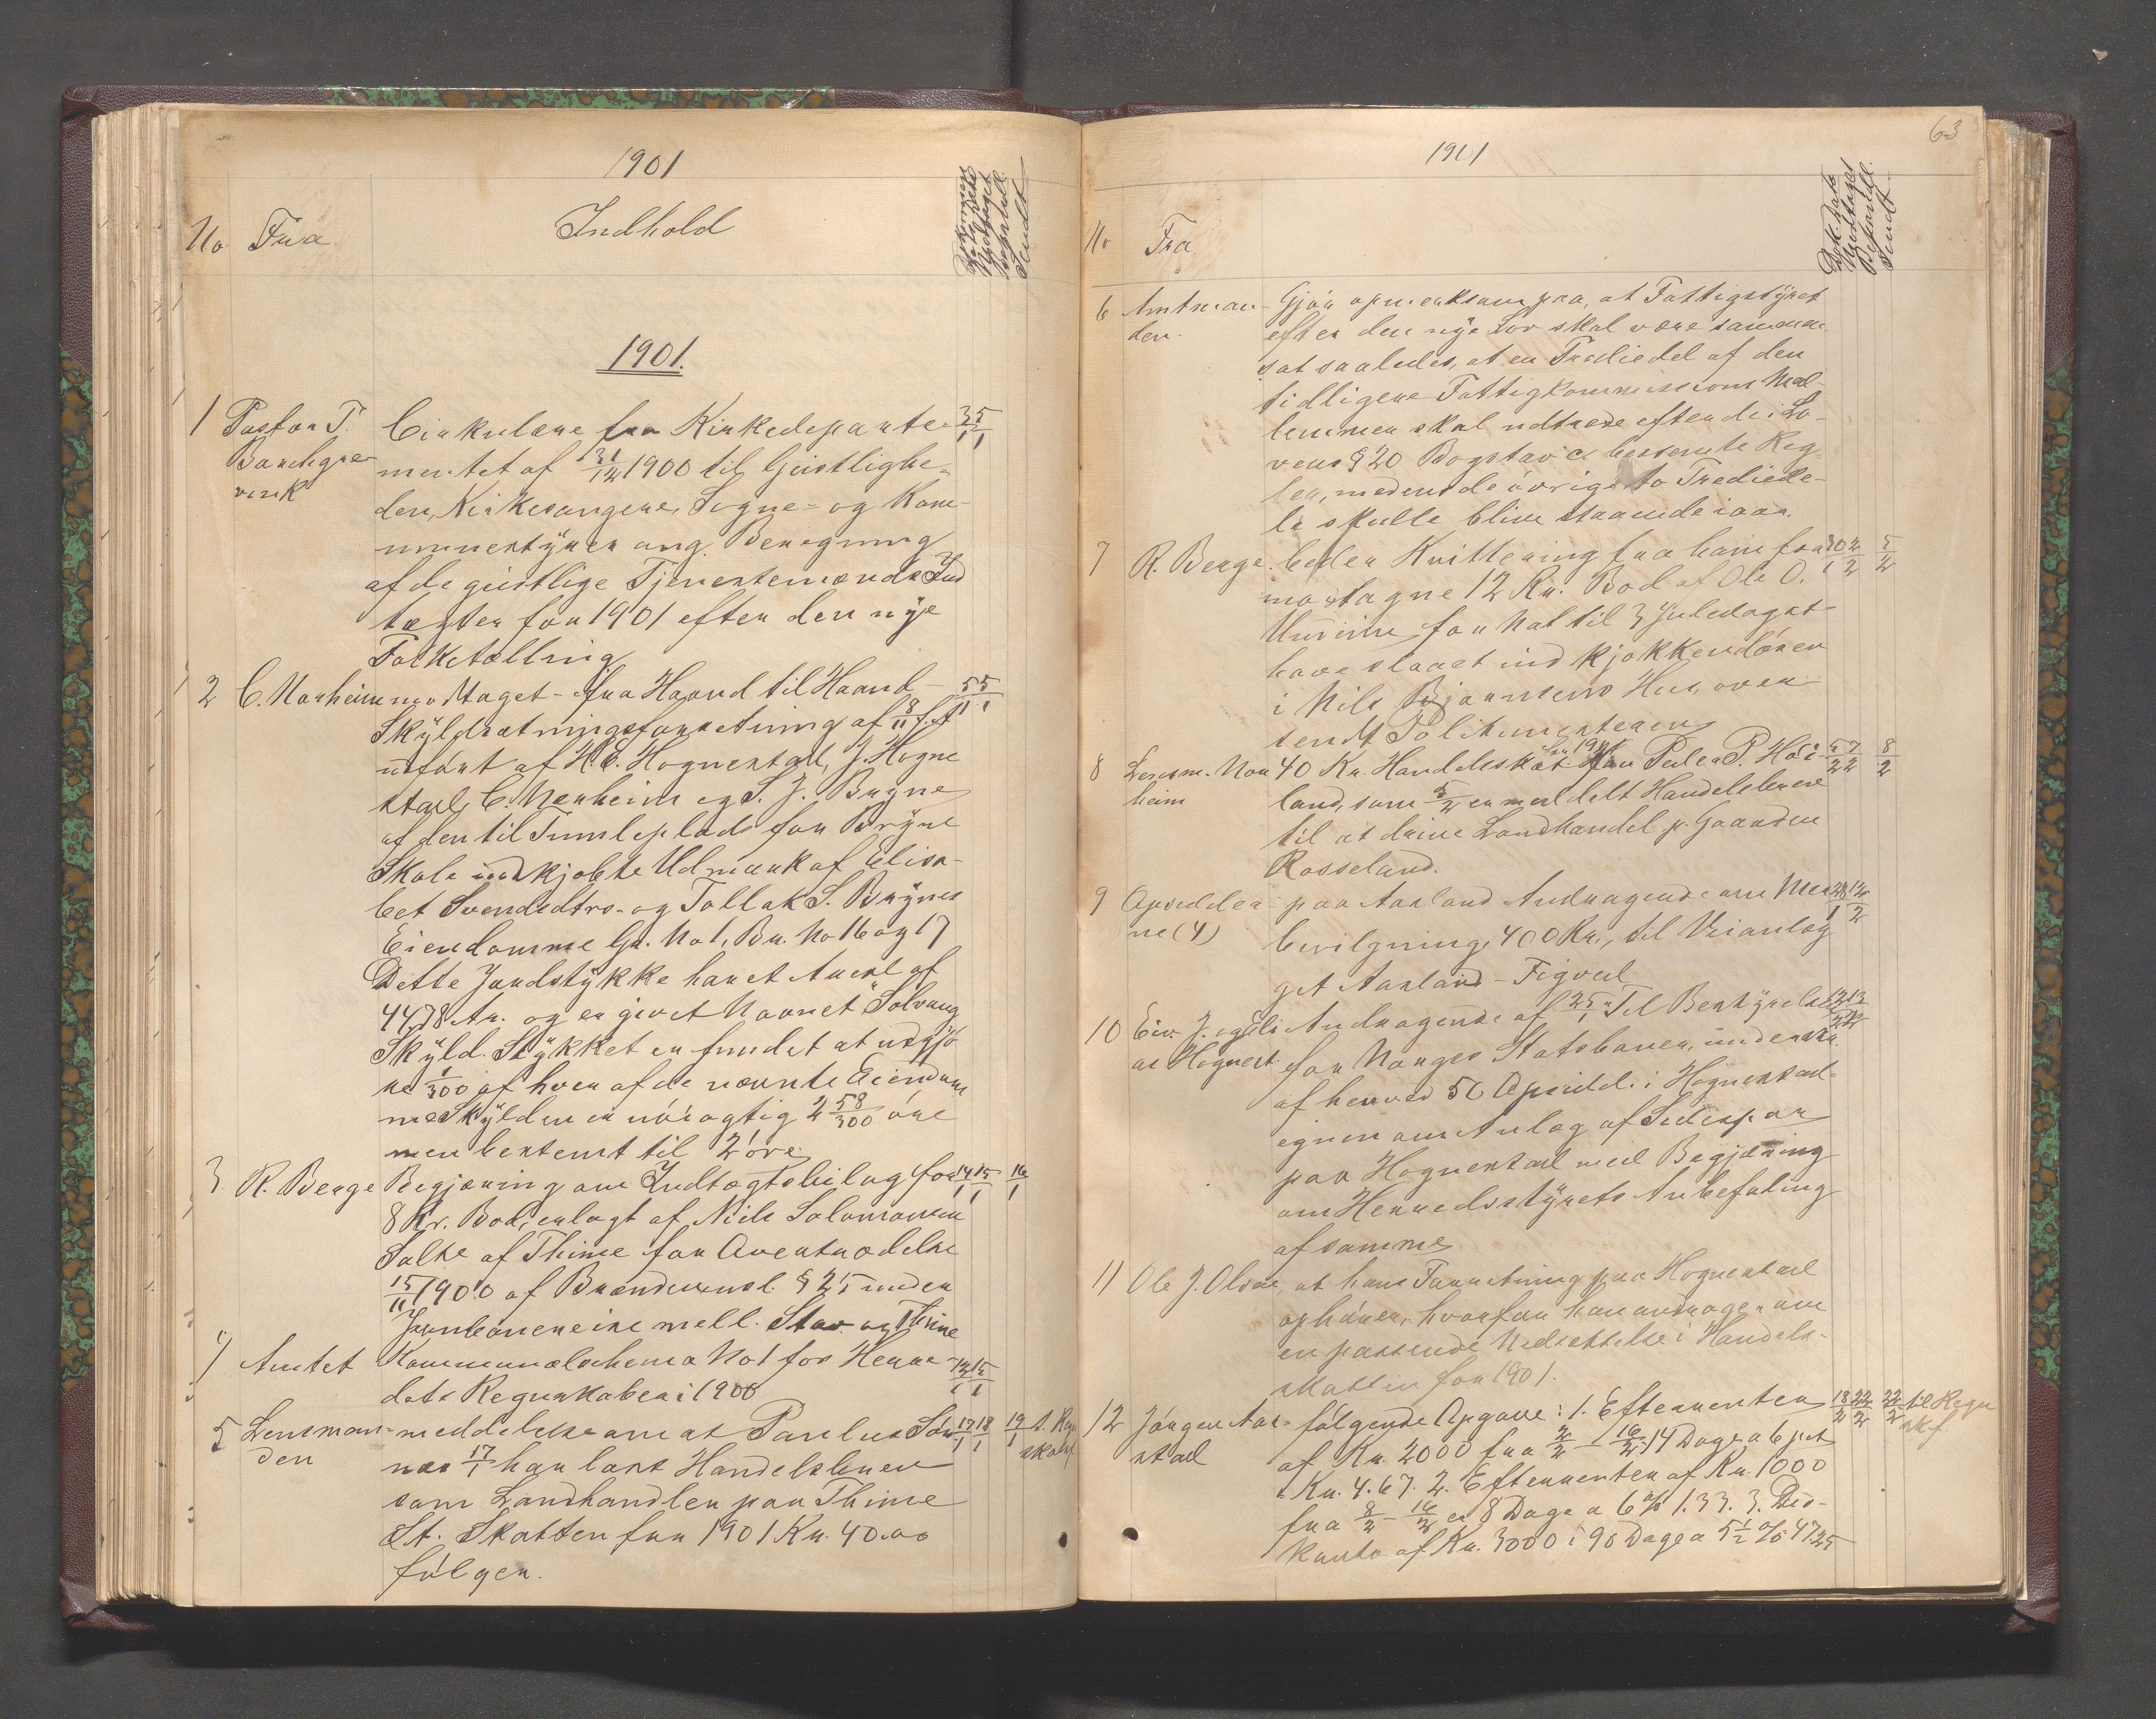 1901
No Fra Indhold
Dokumentets Dato Modtaget Behandl. Sendt
1901.
1 Pastor T. Cirkulære fra Kirkedeparte- 3/1 5/1
Barchgre- mentet af 31/12 1900 til Geistlighe-
vink
den, Kirkesangere, Sogne- og Kom-
munestyrer ang. Beregning
af de geistlige Tjenestemænds Ind
tægter for 1901 efter den nye
Folketælling
2 C. Norheim modtaget - fra Haand til Haand - 5/1 5/1
Skyldsætningsforretning af 8/11 f. A
udført af H. E. Hognestad, J. Hogne
stad, C. Norheim og S. J. Bryne
af den til Tumleplads for Bryne
Skole indkjøbte Udmark af Elisa-
bet Svendsdtrs- og Tollak S. Brynes
Eiendomme Gr. No 1, Br. No 16 og 17
Dette Jordstykke har et Areal af
4478 Ar. og er givet Navnet "Solvang"
Skyld. Stykket er fundet at udgjø
re 1/300 af hver af de nævnte Eiendom
me Skylden er nøiagtig 2 58/300 øre
men bestemt til 2 øre.
3 R. Berge Begjæring om Indtægtsbilag for 14/1 15/1 16/1
8 Kr. Bod, erlagt af Niels Salomonsen
Salte af Thime for Overtrædelse
15/11 1900 af Brændevinsl. § 25 under
Jernbanereise mell. Stav. og Thime
4 Amtet Kommunalschema No 1 for Herre- 12/1 15/1
dets Regnskaber i 1900
5 Lensman- meddelelse om at Paulus Søn 17/1 18/1 19/1 t. Reg
den næs 17/1 har løst Handelsbrev skabsf
som Landhandler paa Thime
St. Skatten for 1901 Kr. 40.00
følger.
63
1901
No Fra
Dok. Dato Modtaget Behandl. Sendt
6 Amtman- Gjør opmerksom paa, at Fattigstyret
den. efter den nye Lov skal være sammen-
sat saaledes, at en Trediedel af den
tidligere Fattigkommissions Med-
lemmer skal udtræde efter de i Lo-
vens § 20 Bogstav c. bestemte Reg-
ler, medens de øvrige to Trediede-
le skulle blive staaende iaar.
7 R. Berge. beder Kvittering fra ham for 30/1 2/2 5/2
modtagne 12 Kr. Bod af Ole O.
for Nat til 3 Juledag at
have slaaet ind Kjøkkendøren
i Nils Bjørnsens Hus, over-
sendt Politimesteren
8 Lensm. Nor- 40 Kr. Handelsskat for 1901 fra Peder P. Høi- 5/2 7/2 8/2
heim land, som 5/2 er meddelt Handelsbrev
til at drive Landhandel p. Gaarden
Rosseland.
9 Opsidder- paa Aarland Andragende om Mer 28/1 12/2
ne (4) bevilgning, 400 Kr., til Veianlæg
get Aarland - Figved
10 Eiv. J. og Andragende af 25/1 "Til Bestyrelsen 12/2 13/2
for Norges Statsbaner, underskr.
af henved 50 Opsidd. i Hognestad-
egnen om Anlæg af Sidespor
paa Hognestad med Begjæring
om Herredsstyrets Anbefaling
af samme
11 Ole J. Olsen, at hans Forretning paa Hognestad
ophører, hvorfor han andrager om
en passende Nedsættelse i Handels-
skatten for 1901.
12 Jørgen Aar- følgende Opgave: 1. Efterrenter 18/2 22/2 22/2 til Regn
stad af Kr. 2000 fra 2/2 - 16/2 14 Dage a 6 pct skf.
Kr. 4.67. 2. Efterrenter af Kr. 1000
fra 8/2 - 16/2 er 8 Dage a 6 % 1.33. 3. Dis-
konto af Kr. 3000 i 90 Dage a 5 1/2 % 47.25